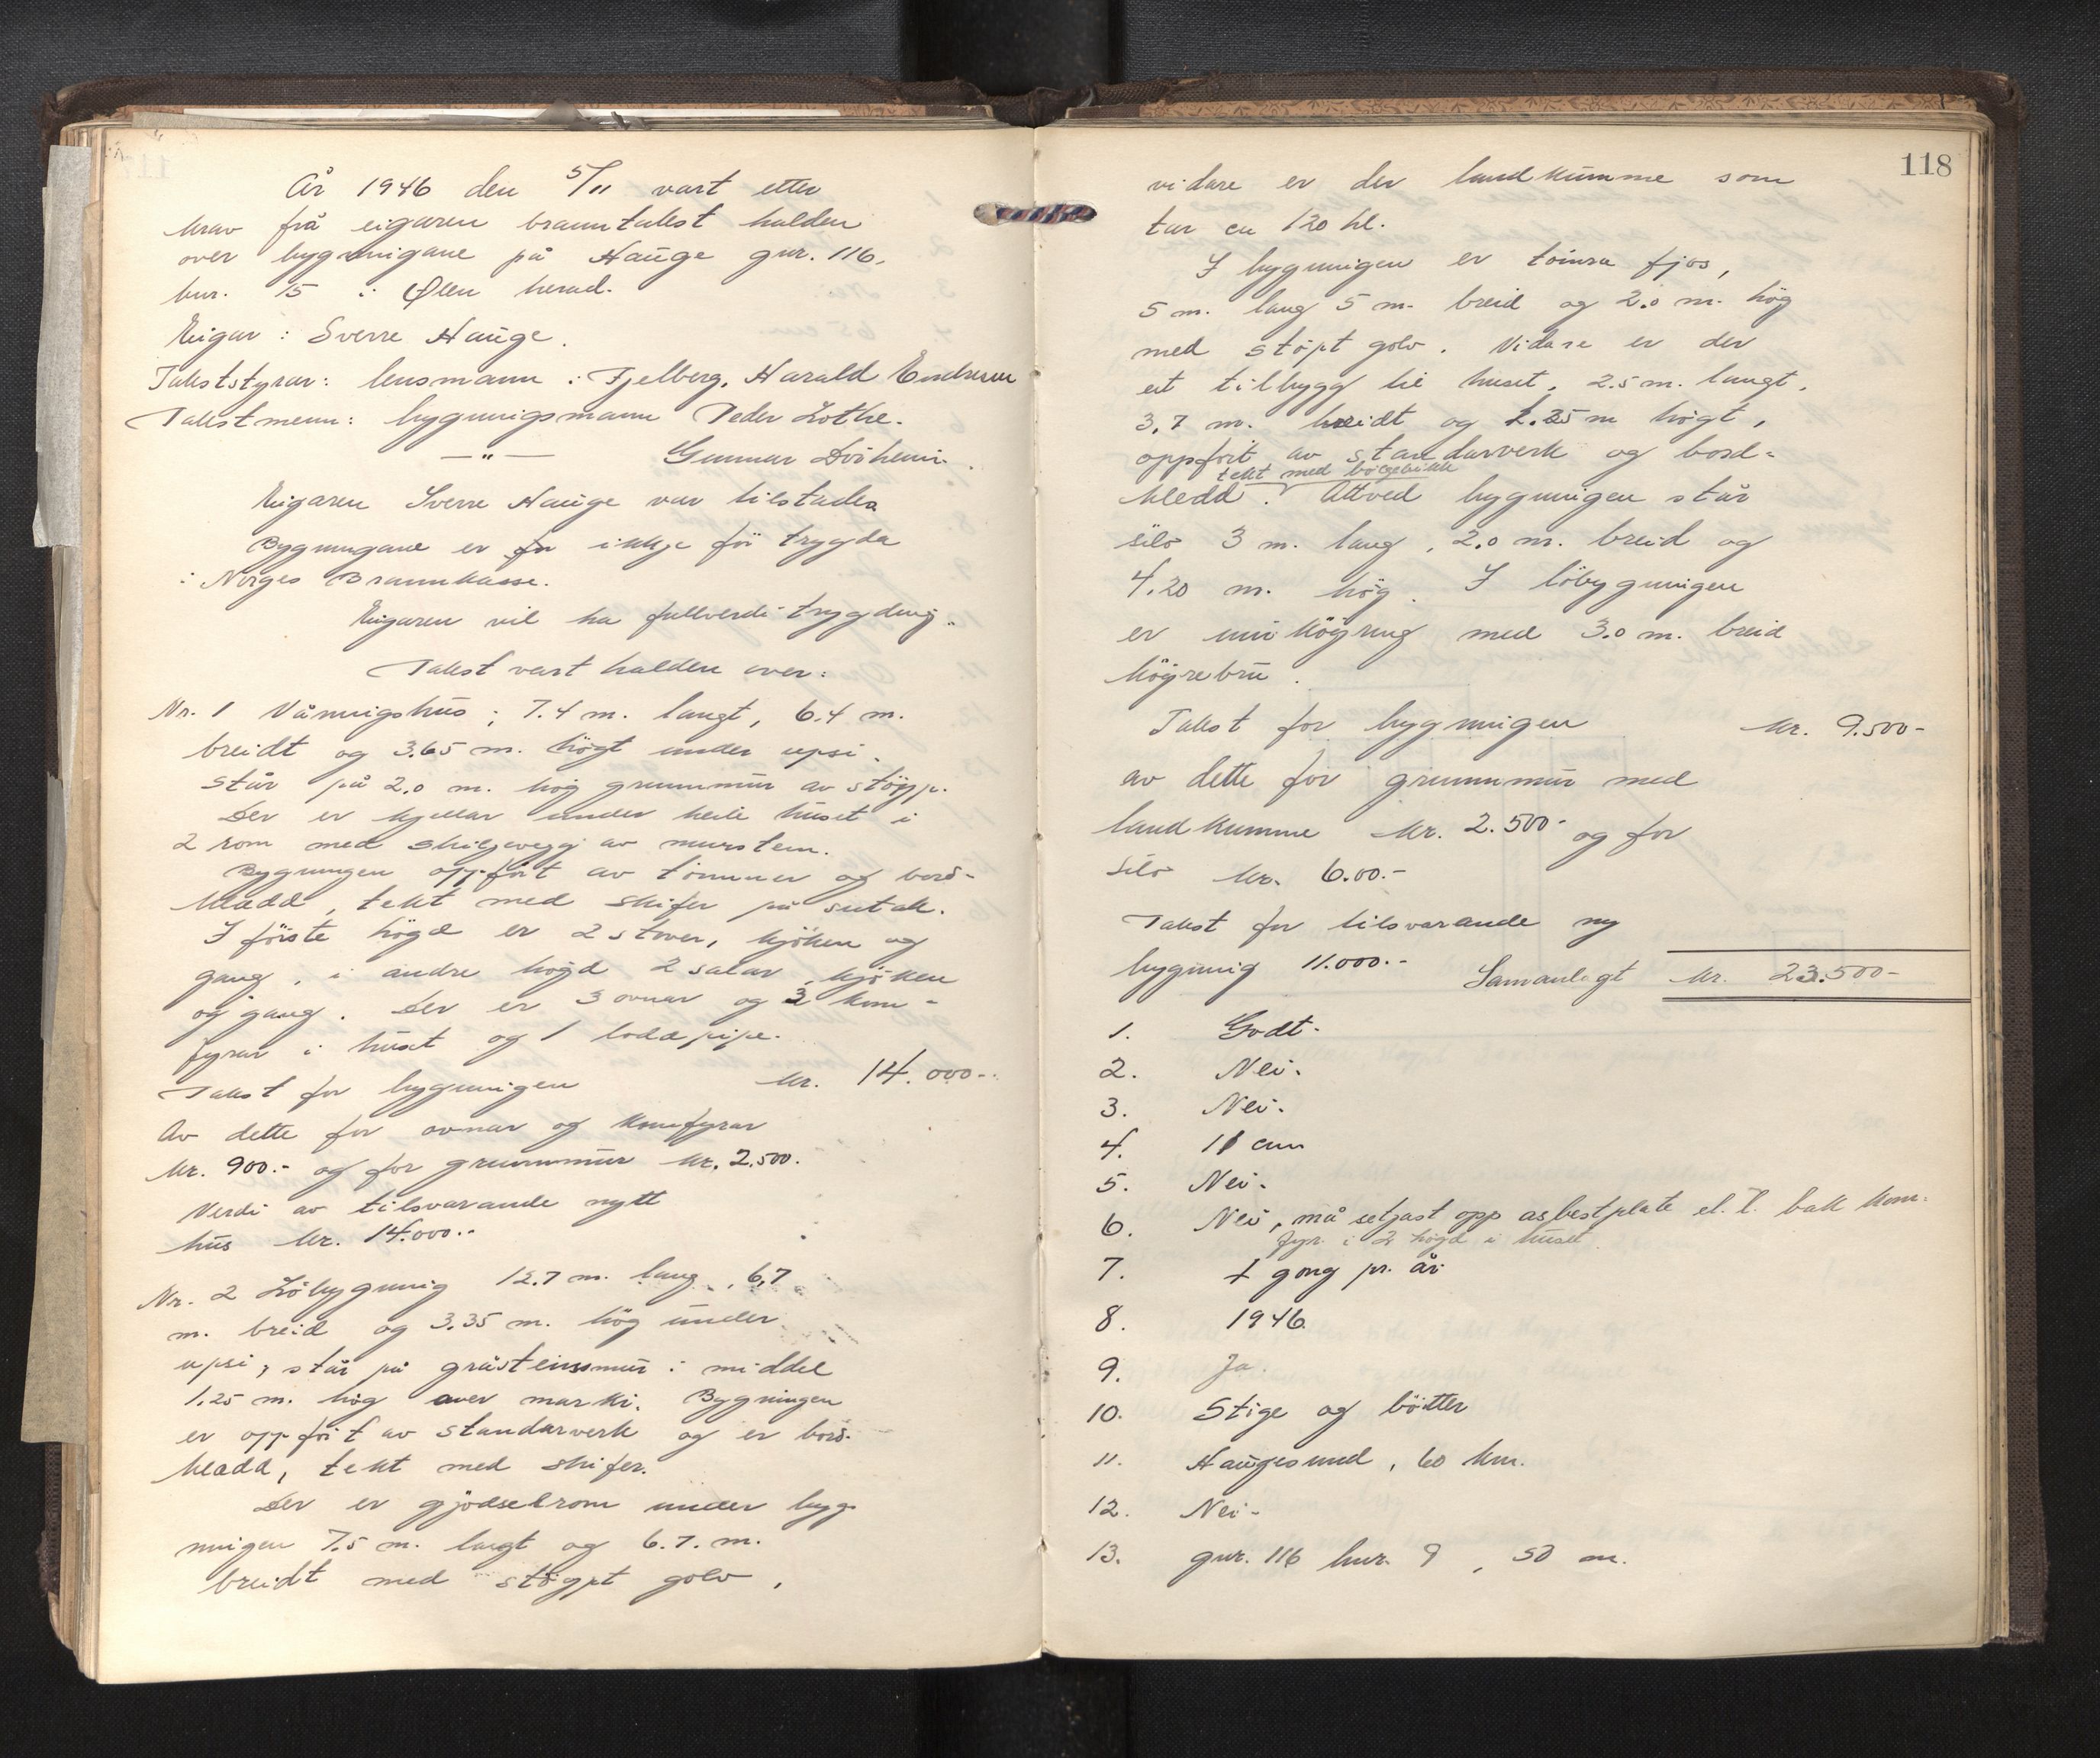 År 1946 den 5/11 vart etter
krav frå eigaren branntakst halden
over bygningane på Hauge gnr. 116,
bnr. 15 i Ølen herad.
Eigar: Sverre Hauge.
Takststyrar: lensmann i Fjelberg, Harald Endresen
Takstmenn: bygningsmann Peder Lothe.
—"— Gunnar
Eigaren Sverre Hauge var tilstades
Bygningane er fø ikkje før trygda
i Norges Brannkasse.
Eigaren vil ha fullverdi-trygding.
Takst vart halden over:
Nr. 1 Våningshus; 7.4 m. langt, 6.4 m.
breidt og 3.65 m. høgt under upsi.
Står på 2.0 m. høg grunnmur av støyp.
Der er kjellar under heile huset i
2 rom med skiljevegg av murstein.
Bygningen oppført av tømmer og bord-
kledd, tekt med skifer på sutak.
I første høgd er 2 stover, kjøken og
gang, i andre høgd 2 salar, kjøken
og gang. Der er 3 omnar og 2 kom-
fyrar i huset og 1 loddpipe.
Takst for bygningen kr. 14.000.-
Av dette for omnar og komfyrar
kr. 900.- og for grunnmur kr. 2.500.
Verdi av tilsvarande nytt
hus kr. 14.000.-
Nr. 2 Løbygning 12.7 m. lang, 6,7
m. breid og 3.35 m. høg under
upsi, står på gråsteinsmur i middel
1.25 m. høg over marki. Bygningen
er oppført av standarverk og er bord-
kledd, tekt med skifer.
Der er gjødselrom under byg-
ningen 7.5 m. langt og 6.7. m.
breidt med støypt golv,
118
vidare er der landkumme som
tar ca 120 hl.
I bygningen er tømra fjos,
5 m. lang 5 m. breid og 2.0 m. høg
med støpt golv. Vidare er der
eit tilbygg til huset, 2.5 m. langt,
3,7 m. breidt og 2.25 m høgt,
oppført av standarverk og bord-
tekt med bølgeblikk
kledd. Attved bygningen står
silo 3 m. lang, 2.0 m. breid og
4.20 m. høg. I løbygningen
er innkøyring med 3.0 m. breid
køyrebru.
Takst for bygningen kr. 9.500-
av dette for grunnmur med
landkumme kr. 2.500- og for
silo kr. 6.00.-
Takst for tilsvarande ny
bygning 11.000.- Samanlagt kr. 23.500-
1. Godt.
2. Nei.
3. Nei.
4. 11 cm
5. Nei.
6. Nei, må setjast opp asbestplate el. l. bak kom-
fyr. i 2 høgd i huset.
7. 1 gong pr. år
8. 1946.
9. Ja.
10. Stige og bøtter
11. Haugesund, 60 km.
12. Nei-
13. gnr. 116 bnr. 9, 50 m.